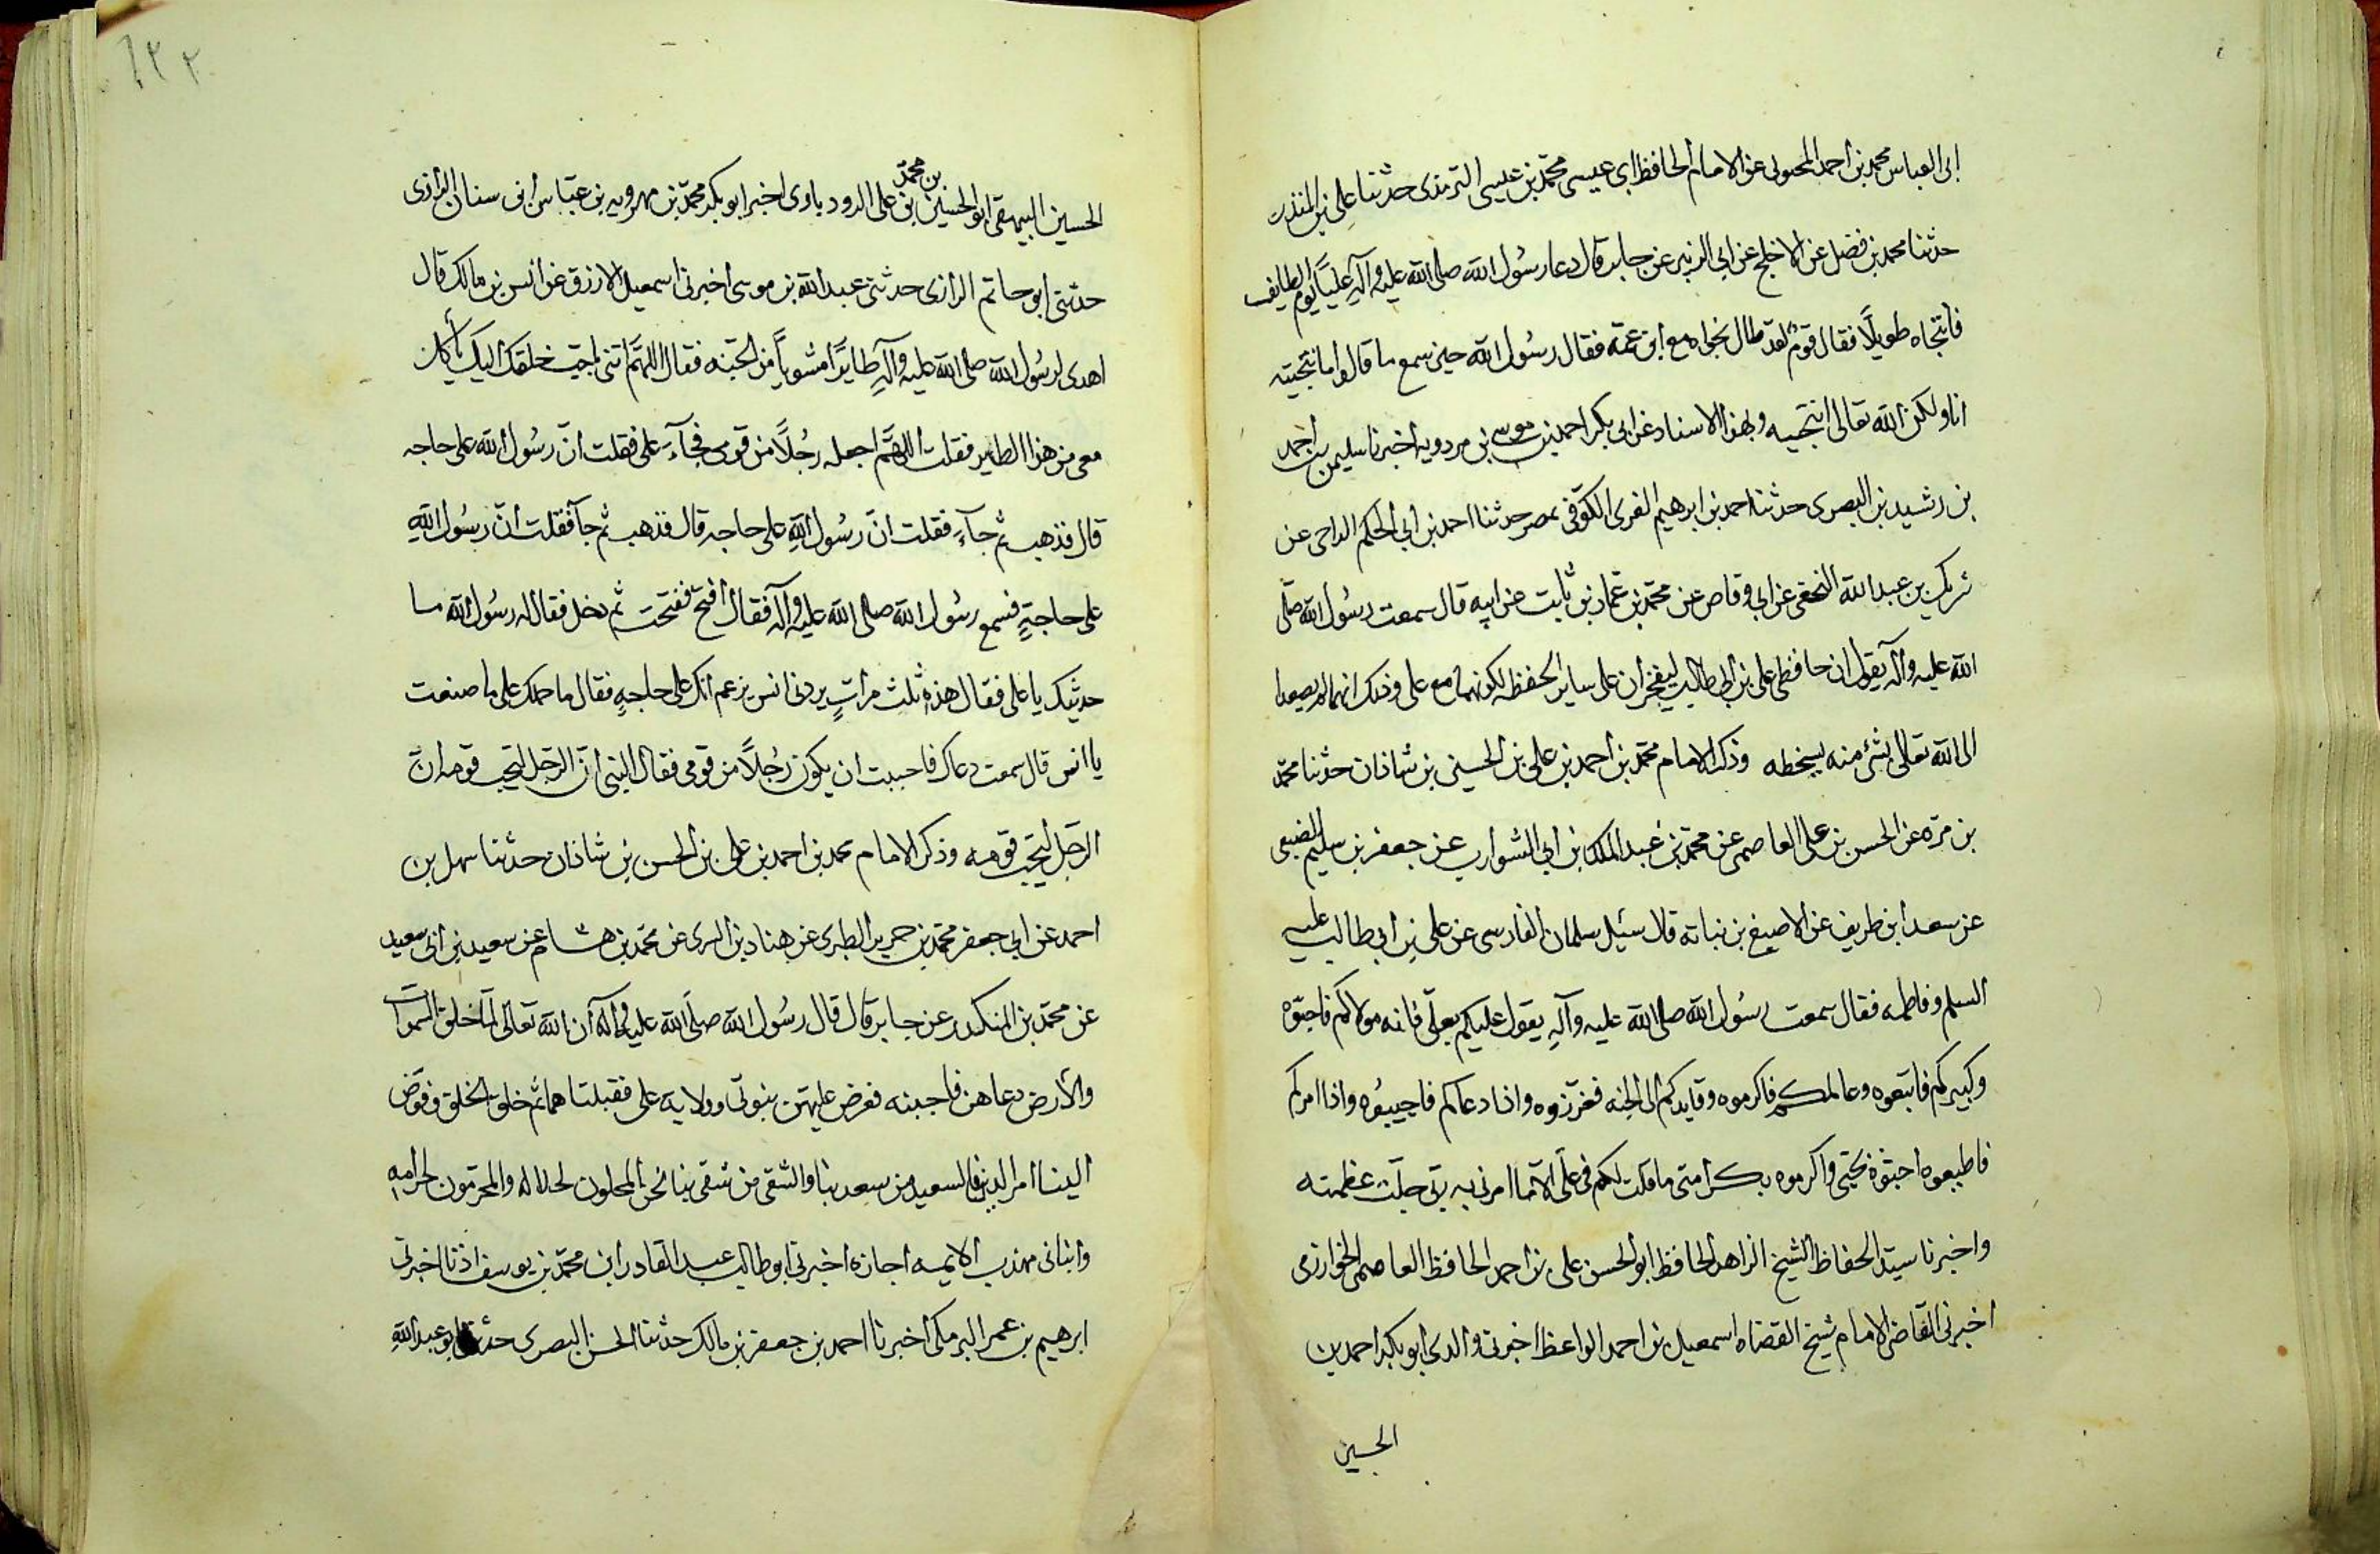 ابى العباس محمد بن احمد المحبوبى عن الامام الحافظ ابى عيسى محمّد بن عيسى الترمذى حدثنا على بن المنذر
حدثنا محمد بن فضل عن الاجلح عن ابى الزبير عن جابر قال دعا رسُول الله صلى الله عليه وآلهِ عليًّا يوم الطايف
فانتجاه طويلًا فقال قومٌ لقد طال نجواه مع ابن عمّه فقال رسُول الله حين سمع ما قالوا ما انتجيته
انا ولكن الله تعالى انتجيه وبهذا الاسناد عن ابى بكر احمد بن موسى بن مردويه اخبرنا سليمن بن احمد
بن رشيد بن البصرى حدثنا احمد بن ابرهيم الفرى الكوفى بمصر حدثنا احمد بن ابى الحكم الداحى عن
شريك بن عبد الله النخعى عن ابى وقاص عن محمّد بن عمّار بن ثابت عن ابيه قال سمعت رسُول الله صلّى
الله عليه وآله يقول ان حافظى على بن ابى طالب ليفخران على ساير الحفظه لكونهما مع على وذلك انهما لم يصعدا
الى الله تعالى بشئ منه يسخطه وذكر الامام محمّد بن احمد بن على بن الحسن بن شاذان حدثنا محمّد
بن مرّه عن الحسن بن على العاصمى عن محمّد بن عبد الملك بن ابى الشوارب عن جعفر بن سليم الضبعى
عن سعد ابن طريف عن الاصبغ بن نباته قال سئيل سلمان الفارسى عن على بن ابى طالب عليه
السلم وفاطمه فقال سمعت رسُول الله صلى الله عليه وآلهِ يقول عليكم بعلّى فانه مولاكم فاحبّوه
وكبيركم فاتبعوه وعالمكم فاكرموه وقايدكم الى الجنه فعزّزوه واذا دعاكم فاجيبوُه واذا امركم
فاطيعوه احبّوهُ بحبّى واكرموه بكرامتى ما قلت لكم فى علّى الّا ما امرنى به ربّى جلّت عظمته
واخبرنا سيّد الحفاظ الشيخ الزاهد الحافظ ابو الحسن على بن احمد الحافظ العاصمى الخوارزمى
اخبرنى القاضى الامام شيخ القضاه اسمعيل بن احمد الواعظ اخبرنى والدى ابو بكر احمد بن
الحسين
٢٣٢
الحسين البيهقى ابو الحسين بن محمّد بن على الرودباوى اخبر ابو بكر محمّد بن مهرويه بن عبّاس ابن سنان الرازى
حدثنى ابو حاتم الرازى حدثنى عبد الله بن موسى اخبرنى اسمعيل الازرق عن انس بن مالك قال
اهدى لرسُول الله صلى الله عليه وآلهِ طايرًا مشويًا من الجنه فقال اللهمّ ائتنى باحب خلقك اليك يأكل
معى من هذا الطاير فقلت اللهمّ اجعله رجُلًا من قومى فجآء على فقلت انّ رسُول الله على حاجه
قال فذهب ثم جآء فقلت انّ رسُول اللهِ على حاجه قال فذهب ثم جآ فقلت انّ رسُول اللهِ
على حاجتهٍ فسمع رسُول الله صلى الله عليه وآله فقال افتح ففتحت ثم دخل فقال له رسُول الله ما
حديثك يا على فقال هذهِ ثلث مراتٍ يردنى انس يزعم انك على حاجهٍ فقال ما حملك على ما صنعت
يا انس قال سمعت دعاك فاحببت ان يكون رجُلًا من قومى فقال النبى انّ الرّجل ليحبّ قومه انّ
الرّجل ليحبّ قومه وذكر الامام محمد بن احمد بن على بن الحسن بن شاذان حدثنا سهل بن
احمد عن ابى جعفر محمّد بن جرير الطبرى عن هناد بن السرى عن محمّد بن هشام عن سعيد بن ابى سعيد
عن محمّد بن المنكدر عن جابر قال قال رسُول الله صلّى الله عليه وآله ان الله تعالى لما خلق السموات
والارض دعاهن فاجبنه فعرض عليهنّ نبوتى وولايه على فقبلتاهما ثم خلق الخلق وفوّض
الينا امر الدين فالسعيد من سعد بنا والشقى من شقى بنا نحن المحلون لحلاله والمحرّمون لحرامه
وانبانى مهذب الايمه اجازه اخبرنى ابو طالب عبد القادر ابن محمّد بن يوسف اذنا اخبرنى
ابرهيم بن عمر البرمكى اخبرنا احمد بن جعفر بن مالك حدثنا الحسن البصرى حدثنا ابو عبد اللهِ